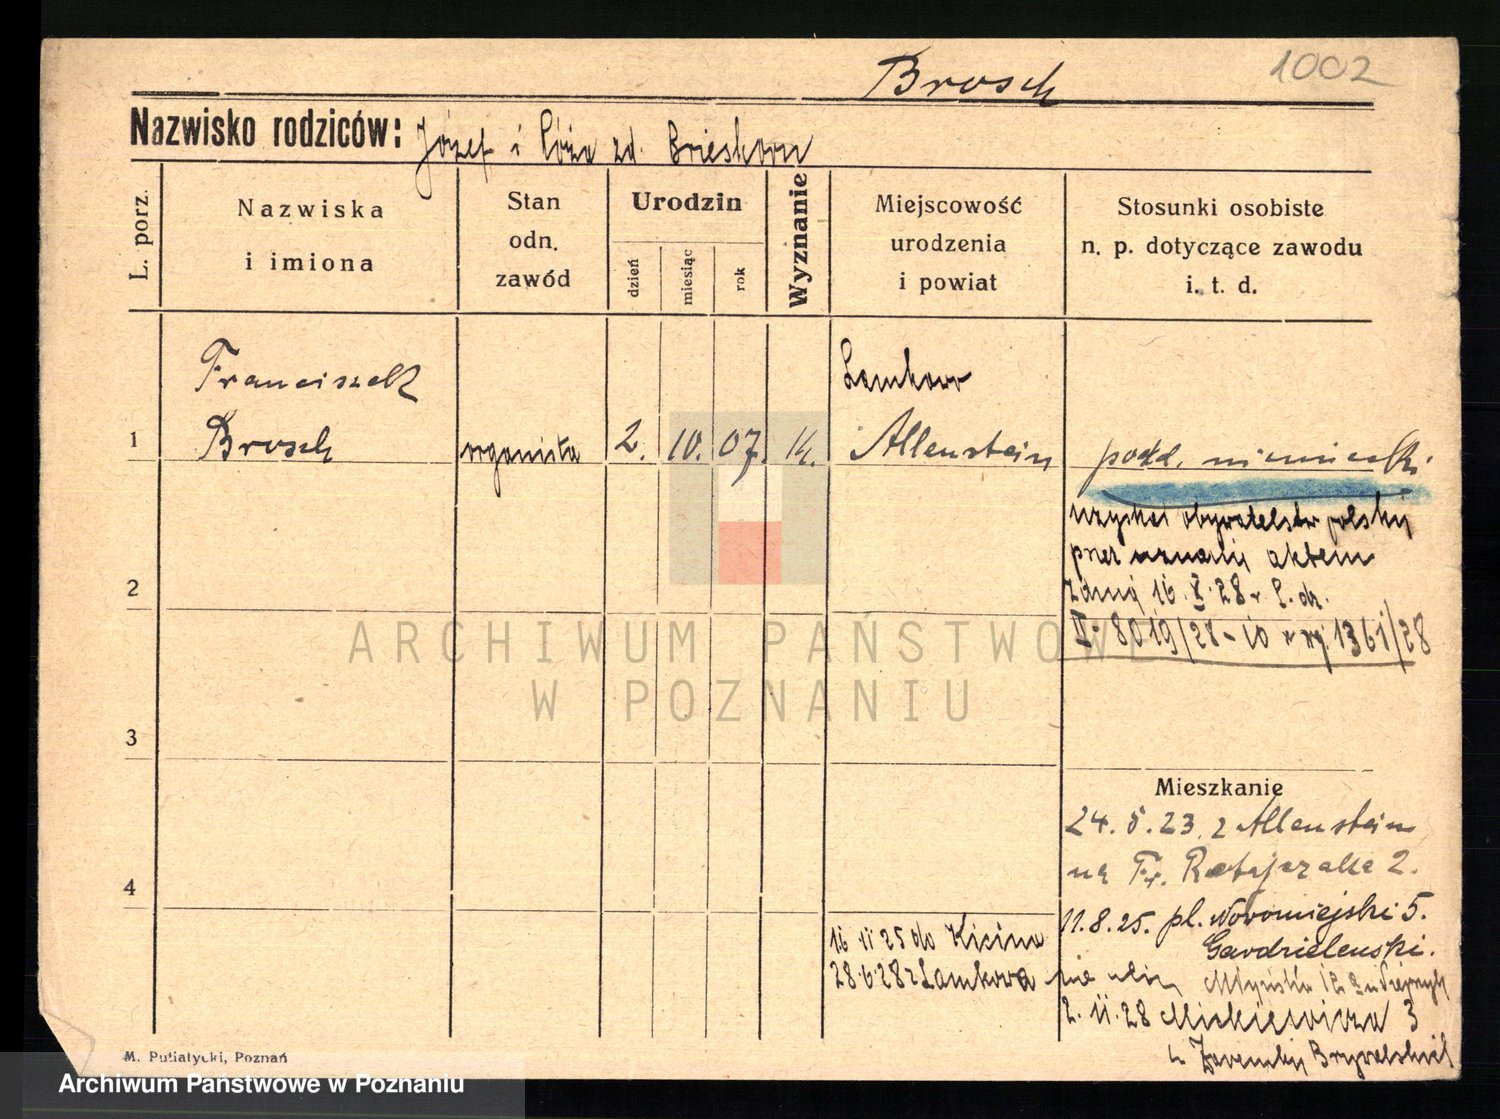 1002
Brosch
Nazwisko rodziców: Józef i Róża zd. Brieskorn
L. porz.
Nazwiska
i imiona
Stan
odn.
zawód
Urodzin
dzień
miesiąc
rok
Wyznanie
Miejscowość
urodzenia
i powiat
Stosunki osobiste
n. p. dotyczące zawodu
i. t. d.
1
Franciszek
Brosch
organista
2. 10. 07. k.
Lamkowo
Allenstein
podd. niemiecki
uzyskał obywatelstw polskie
przez uznanie aktem
z dnia 16. X. 28 r. l. dz.
II. 8019/28 - 10 1361/28
2
3
4
ARCHIWUM PAŃSTWOWE
W POZNANIU
Mieszkanie
24. 5. 23. z Allenstein
na Fr. Ratajczaka 2.
11. 8. 25. pl. Nowomiejski 5.
Gardzielewski.
16 11 25 do Kicina
28.6.28 z Lamkowa
2. 11. 28 Mickiewicza 3
u
M. Putiatycki, Poznań
Archiwum Państwowe w Poznaniu